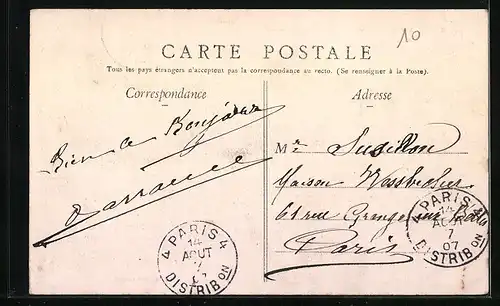 10
CARTE POSTALE
Tous les pays étrangers n'acceptent pas la correspondance au recto. (Se renseigner à la Poste).
Correspondance
Adresse
Bien a Bonjour
Mr
Maison
61 rue Grange aux Belles
Paris
PARIS 4
14
AOUT
7
07
DISTRIBON
4 PARIS
AOUT
7
07
DISTRIBON